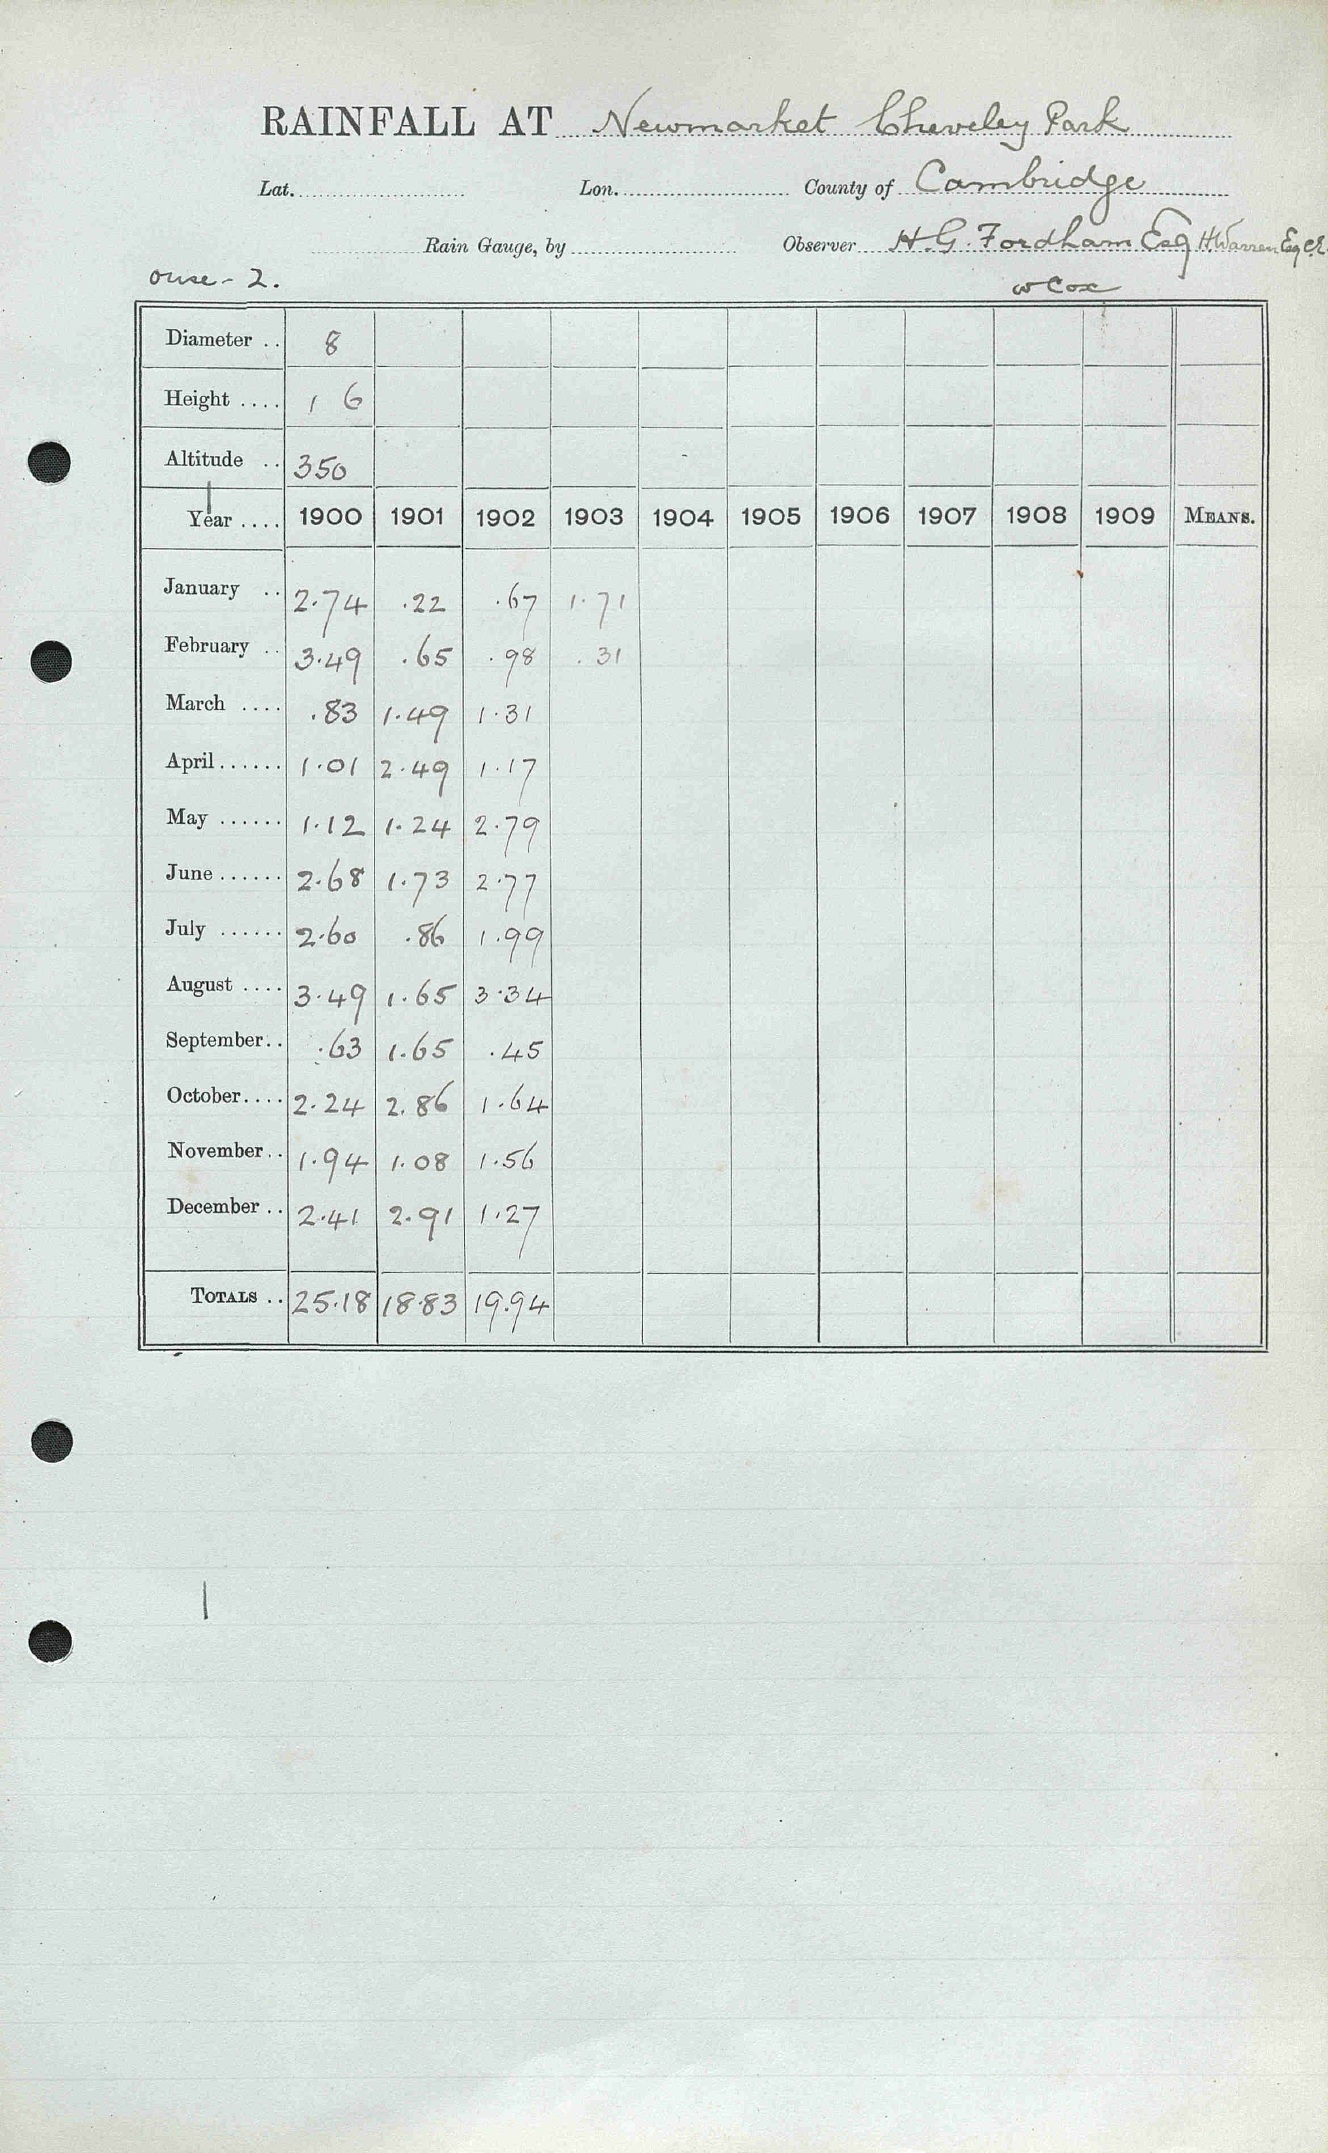 RAINFALL AT Newmarket Cheveley Park
Lat. Lon. County of Cambridge
Rain Gauge, by Observer H. G. Fordham Esq H Warren Esq C.E.
Ouse - 2. W Cox
Diameter .. 8
Height .... 1 6
Altitude .. 350
Year .... 1900 1901 1902 1903 1904 1905 1906 1907 1908 1909 MEANS.
January .. 2.74 .22 .67 1.71
February .. 3.49 .65 .98 .31
March .... .83 1.49 1.31
April...... 1.01 2.49 1.17
May ...... 1.12 1.24 2.79
June...... 2.68 1.73 2.77
July ...... 2.60 .86 1.99
August .... 3.49 1.65 3.34
September.. .63 1.65 .45
October.... 2.24 2.86 1.64
November.. 1.94 1.08 1.56
December .. 2.41 2.91 1.27
TOTALS .. 25.18 18.83 19.94